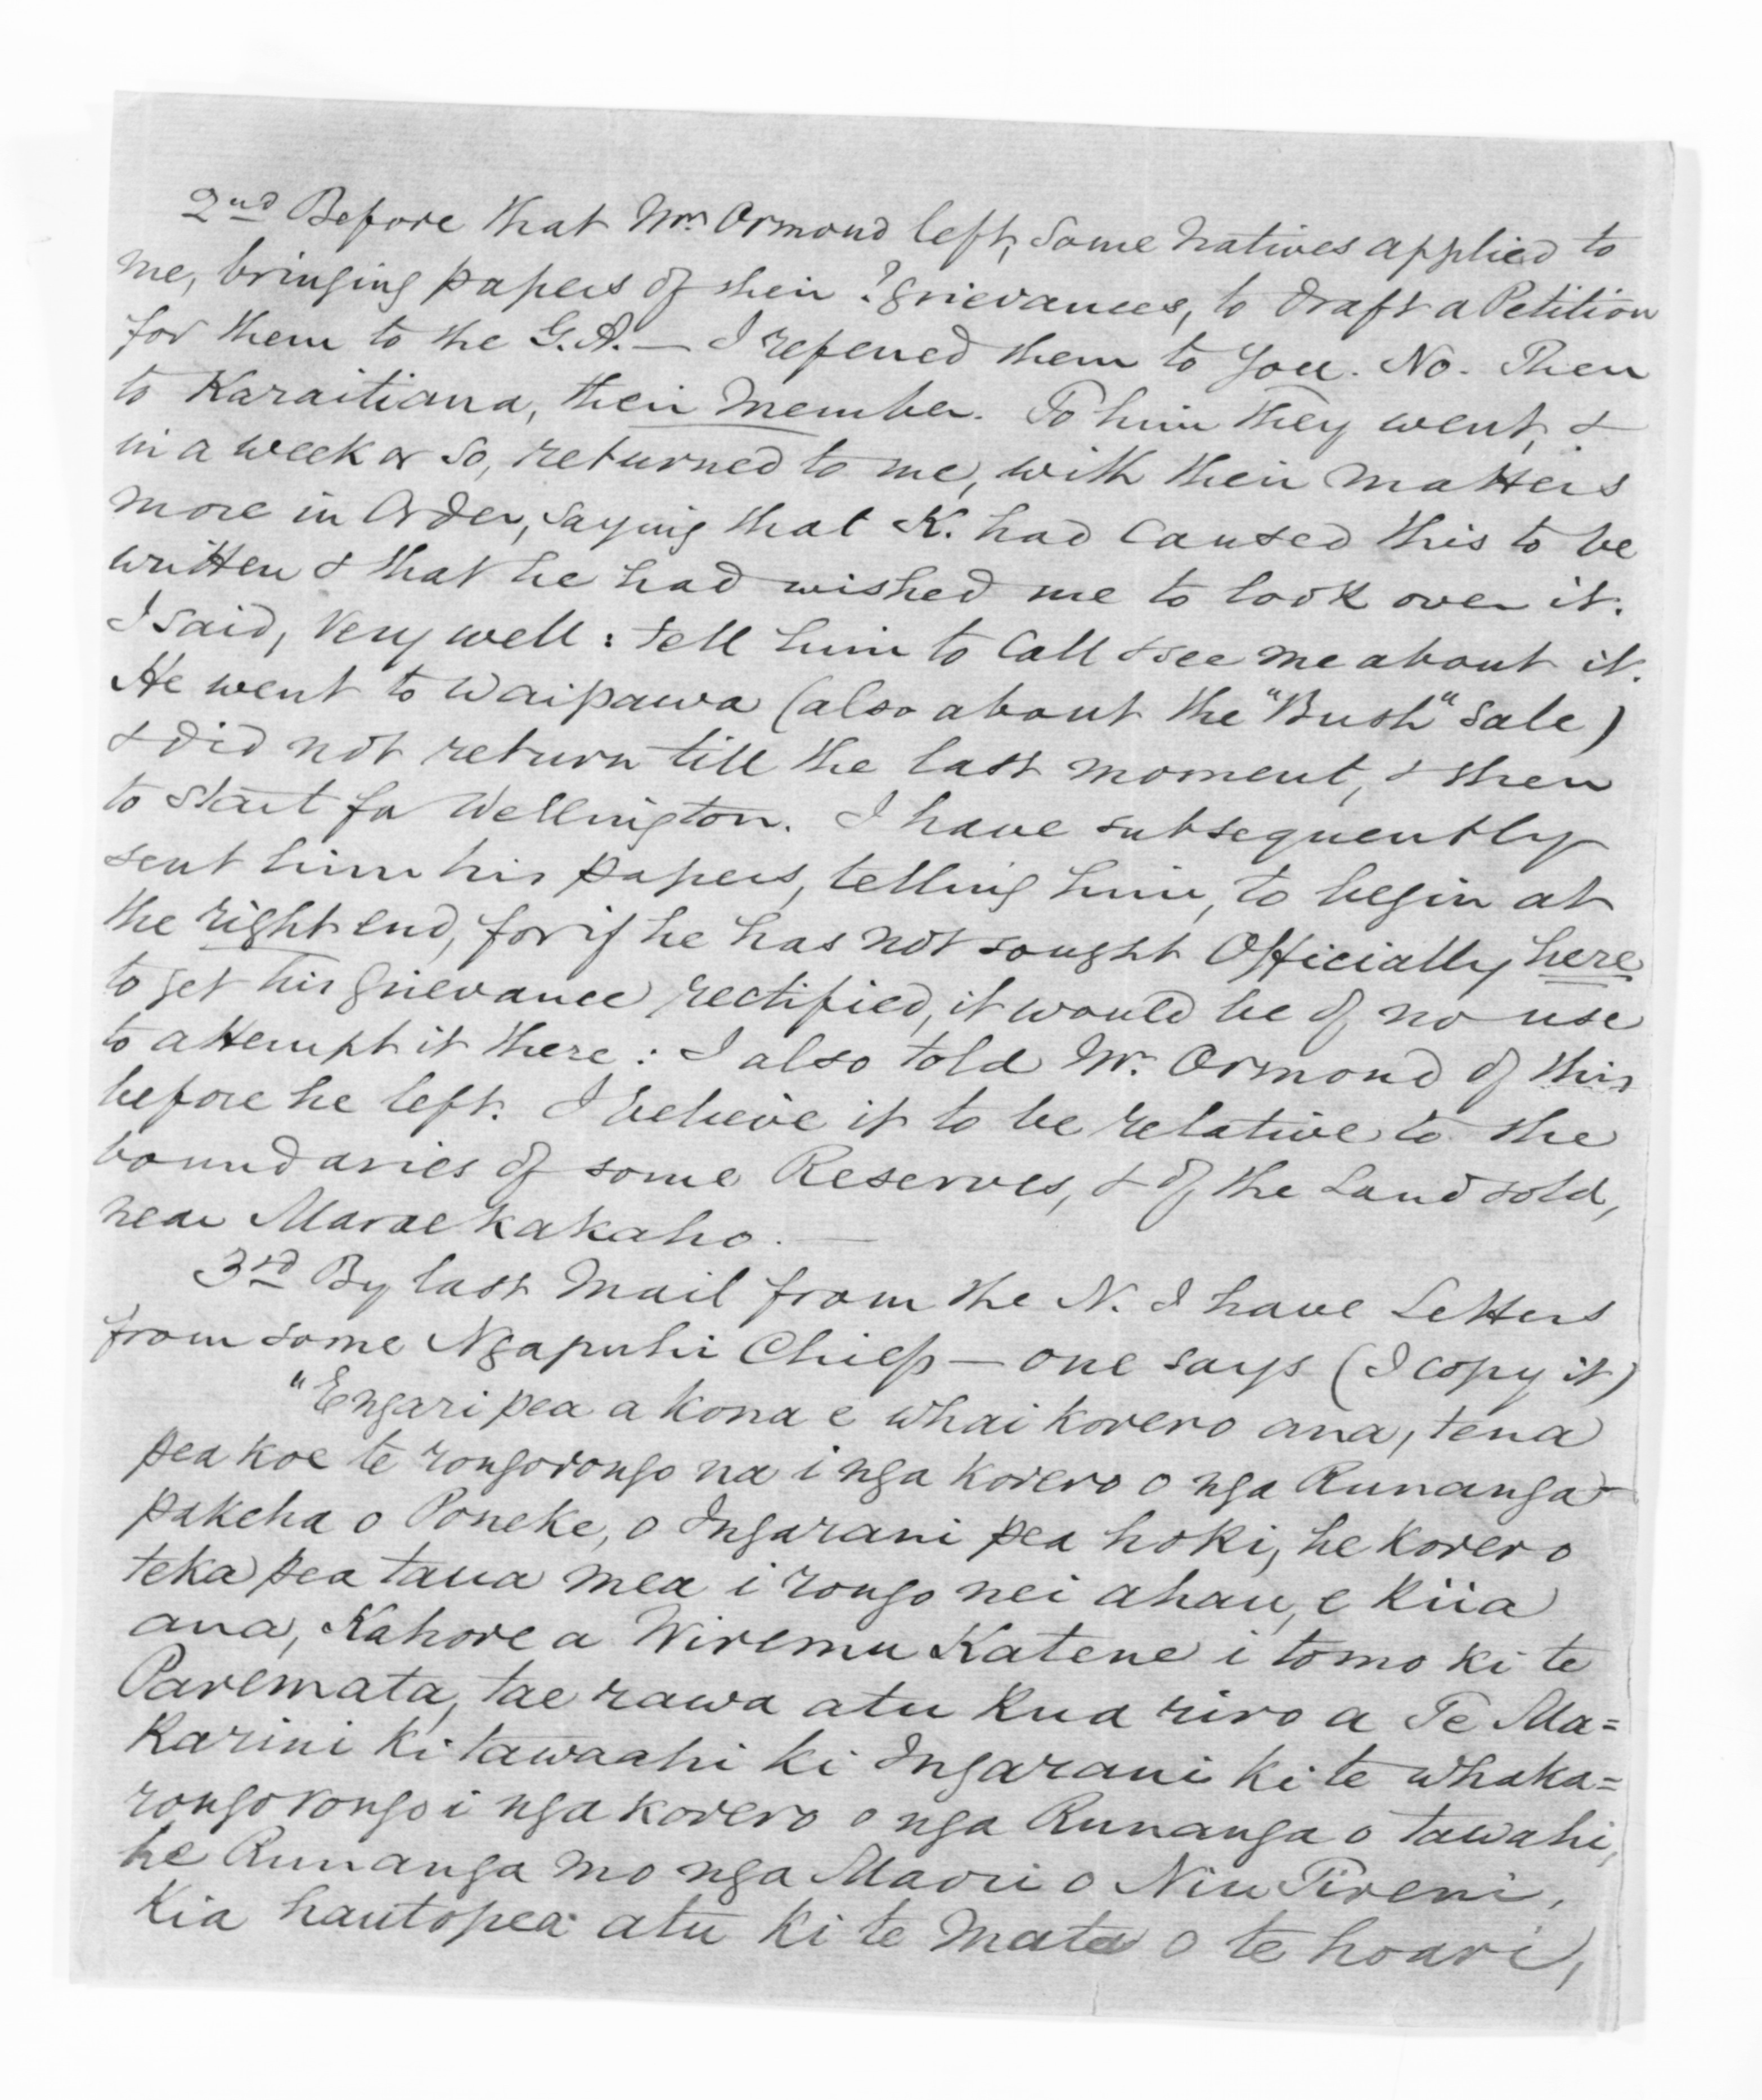 2nd Before that Mr. Ormond left, some natives applied to
me, bringing papers of their ? grievances, to draft a Petition
for them to the G.A. — I refered them to you. No. Then
to Karaitiana, their Member. To him they went, &
in a week or so, returned to me, with their matters
more in order, saying that K. had caused this to be
written & that he had wished me to look over it.
I said, Very well: tell him to call & see me about it.
He went to Waipawa (also about the "Bush" sale)
& did not return till the last moment, & then
to start for Wellington. I have subsequently
sent him his papers, telling him, to begin at
the right end, for if he has not sought Officially here
to get his grievance rectified, it would be of no use
to attempt it there: I also told Mr. Ormond of this
before he left. I believe it to be relative to the
boundaries of some Reserves, & of the Land sold,
near Maraekakaho. —
3rd By last Mail from the N. I have Letters
from some Ngapuhi Chiefs — one says (I copy it)
"Engari pea a kona e whai korero ana, tena
pea koe te rongorongo na i nga korero o nga Runanga
pakeha o Poneke, o Ingarani pea hoki, he korero
teka pea taua mea i rongo nei ahau, e kiia
ana, Kahore a Wiremu Katene i tomo ki te
Paremata, tae rawa atu kua riro a Te Ma=
karini ki tawaahi ki Ingarani ki te whaka=
rongorongo i nga korero o nga Runanga o tawahi,
he Runanga mo nga Maori o Niu Tireni,
Kia hautopea atu ki te mata o te hoari,